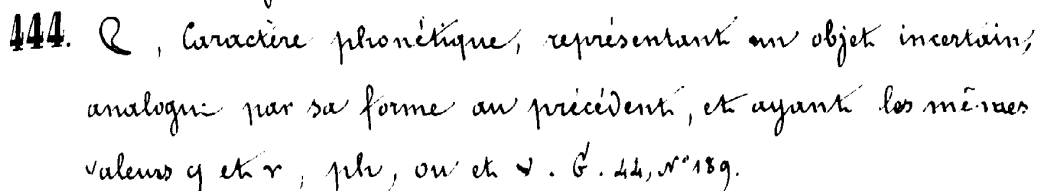 444. Q, Caractère phonétique, représentant un objet incertain,
analogue par sa forme au précédent, et ayant les mêmes
valeurs q et r, ph, ou et v. G. 44, N° 189.